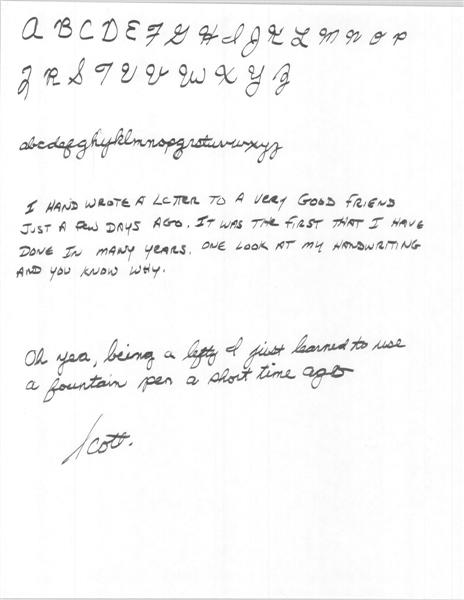 A B C D E F G H I J K L M N O P
Q R S T U V W X Y Z
abcdefghijklmnopqrstuvwxyz
I HAND WROTE A LETTER TO A VERY GOOD FRIEND
JUST A FEW DAYS AGO. IT WAS THE FIRST THAT I HAVE
DONE IN MANY YEARS. ONE LOOK AT MY HANDWRITING
AND YOU KNOW WHY.
Oh yea, being a lefty I just learned to use
a fountain pen a short time ago
Scott.